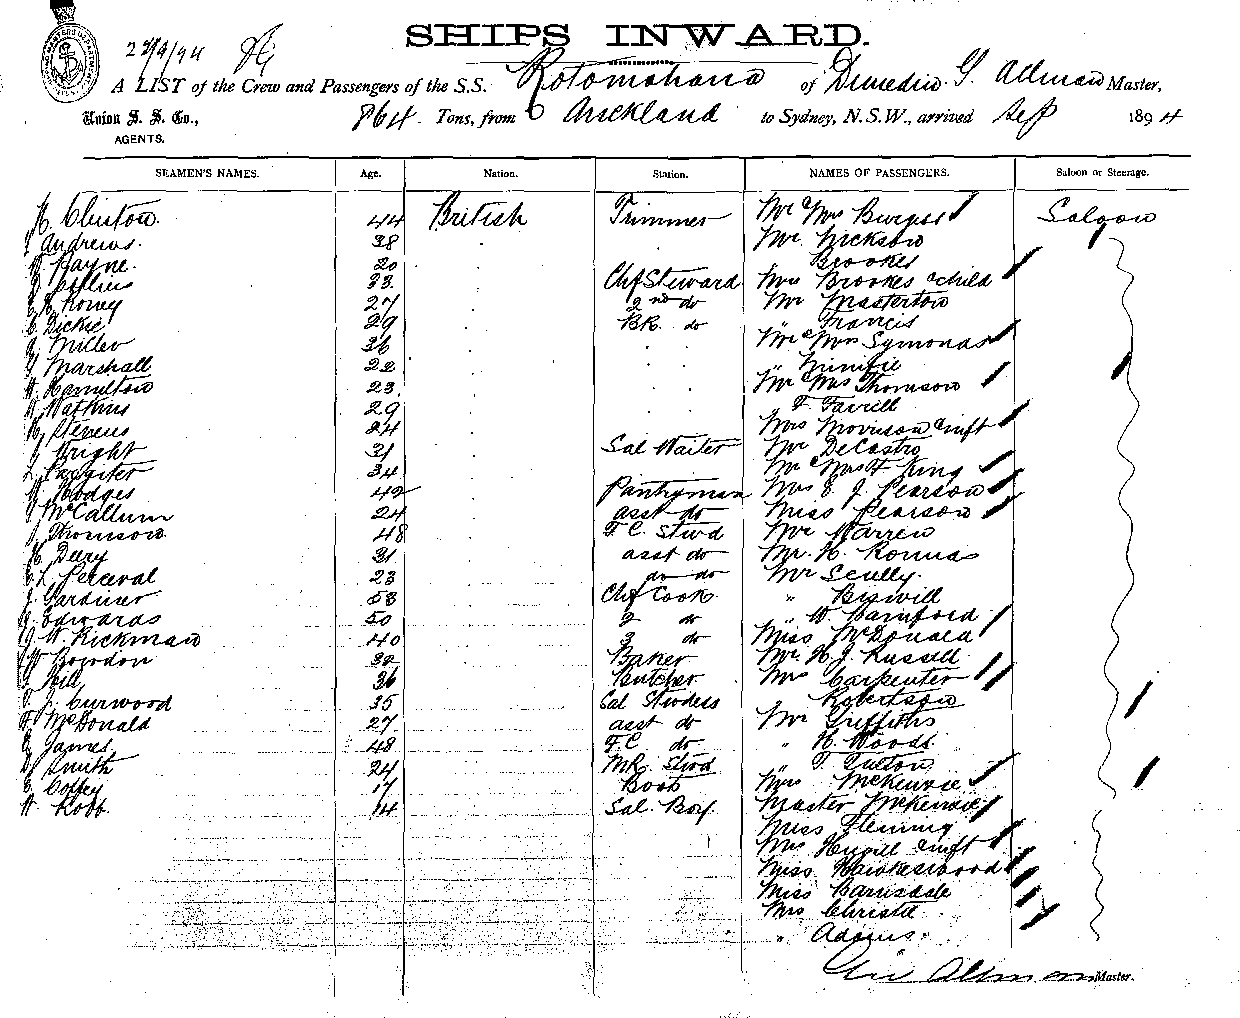 22/9/94
SHIPS INWARD.
A LIST of the Crew and Passengers of the S.S. Rotomahana of Dunedin G. Allman Master,
Union S. S. Co., 864 Tons, from Auckland to Sydney, N.S.W., arrived Sep 1894
AGENTS.
SEAMEN'S NAMES. Age. Nation. Station. NAMES OF PASSENGERS. Saloon or Steerage.
Clinton 44 British Trimmer Mr Mrs Burgess Saloon
Andrews 38 Mr Nickson
Payne 20 Brookes
33 Chf Steward Mrs Brookes & child
27 2nd do Mr Masterton
Dickie 29 BR. do " Francis
Miller 36 Mr & Mrs Symonds
Marshall 22 "
W. Hamilton 23 Mr & Mrs Thomson
Watkins 29 F Farrell
Stevens 24 Mrs Morrison & inft
Wright 31 Sal Waiter Mr DeCastro
34 Mr & Mrs H King
Hodges 42 Pantryman Mrs E J Pearson
McCallum 24 asst do Miss Pearson
Thomson 48 F.C. Stwd Mr Warren
Deery 31 asst do Mr. H.
L Perceval 23 do do Mr Scully
J. Gardiner 53 Chf Cook "
Edwards 50 2 do " W Bamford
W. Rickman 40 3 do Miss McDonald
Bowdon 32 Baker Mr. H J Russell
Hill 36 Butcher Mrs Carpenter
J. Curwood 35 Sal Stwdess Robertson
McDonald 27 asst do Mr Griffiths
James 48 F.C do " H. Woods
Smith 24 MR. Stwd " T.
Coffey 17 Boots Mrs McKenzie
Robb 14 Sal. Boy Master McKenzie
Miss Fleming
Mrs Hugill & inft
Miss Hawkeswood
Miss
Mrs Christie
" Adams
Allman Master.